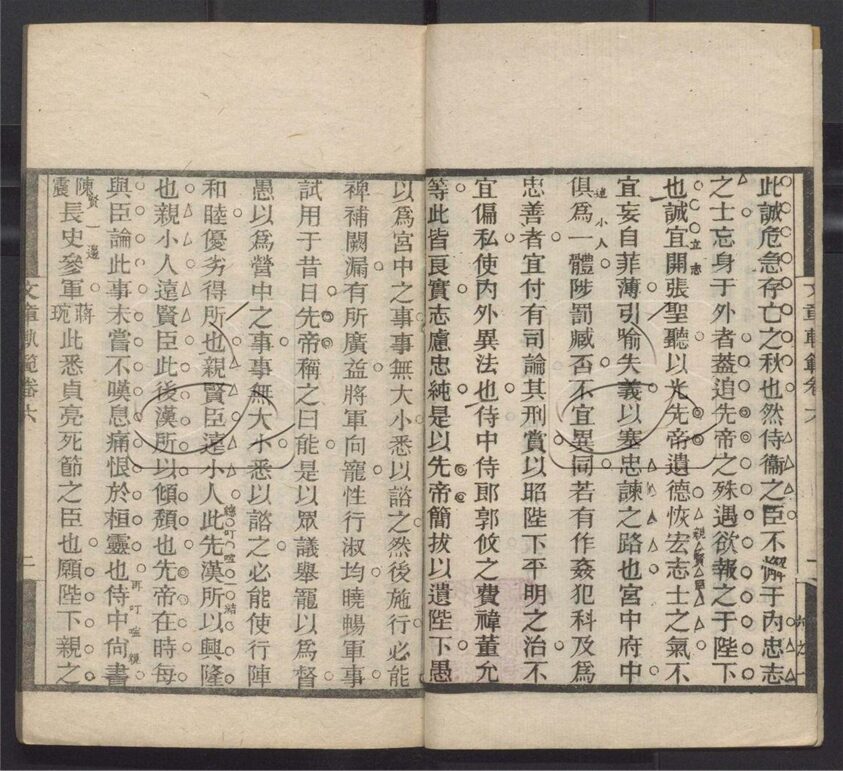 此誠危急存亡之秋也然侍衛之臣不懈于內忠志
之士忘身于外者葢追先帝之殊遇欲報之于陛下
立志
也誠宜開張聖聽以光先帝遺德恢宏志士之氣不
親賢臣
宜妄自菲薄引喻失義以塞忠諫之路也宮中府中
遠小人
俱爲一體陟罰臧否不宜異同若有作姦犯科及爲
忠善者宜付有司論其刑賞以昭陛下平明之治不
宜偏私使內外異法也侍中侍郎郭攸之費禕董允
等此皆良實志慮忠純是以先帝簡拔以遺陛下愚
以爲宮中之事事無大小悉以諮之然後施行必能
裨補闕漏有所廣益將軍向寵性行淑均曉暢軍事
試用于昔日先帝稱之曰能是以眾議舉寵以爲督
愚以爲營中之事事無大小悉以諮之必能使行陣
總叮嚀一結
和睦優劣得所也親賢臣遠小人此先漢所以興隆
也親小人遠賢臣此後漢所以傾頹也先帝在時每
再叮嚀親
與臣論此事未嘗不嘆息痛恨於桓靈也侍中尚書
賢一邊
陳震長史參軍蔣琬此悉貞亮死節之臣也願陛下親之
文章軌範卷六
二